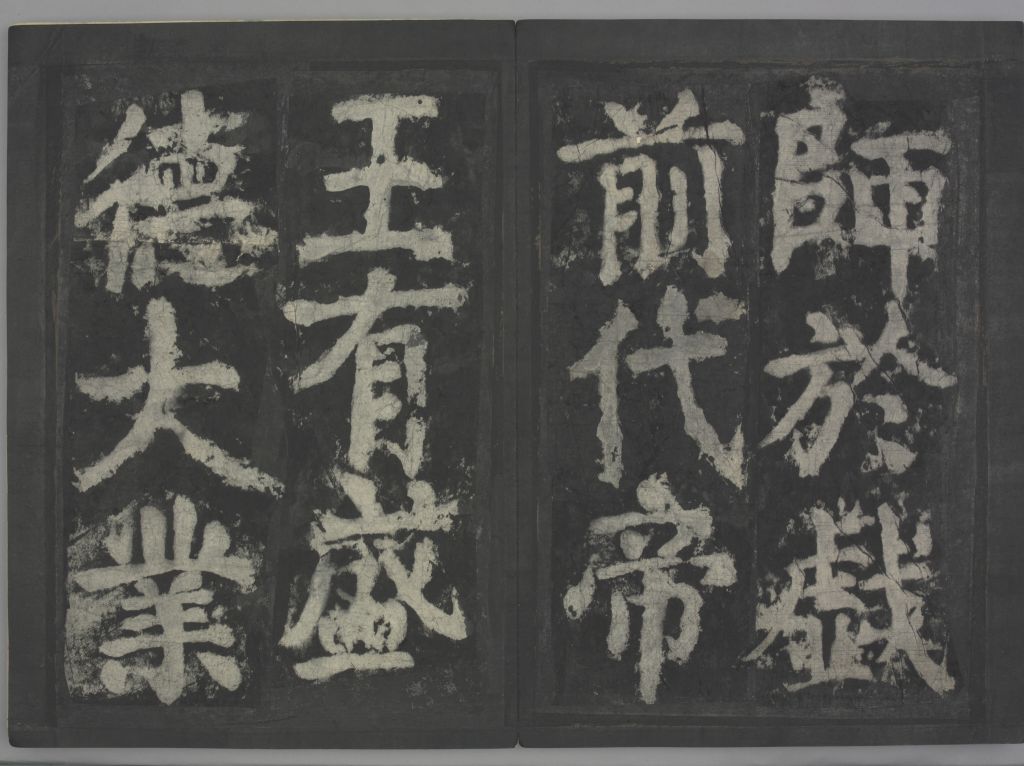 師於戯
前代帝
王有盛
德大業